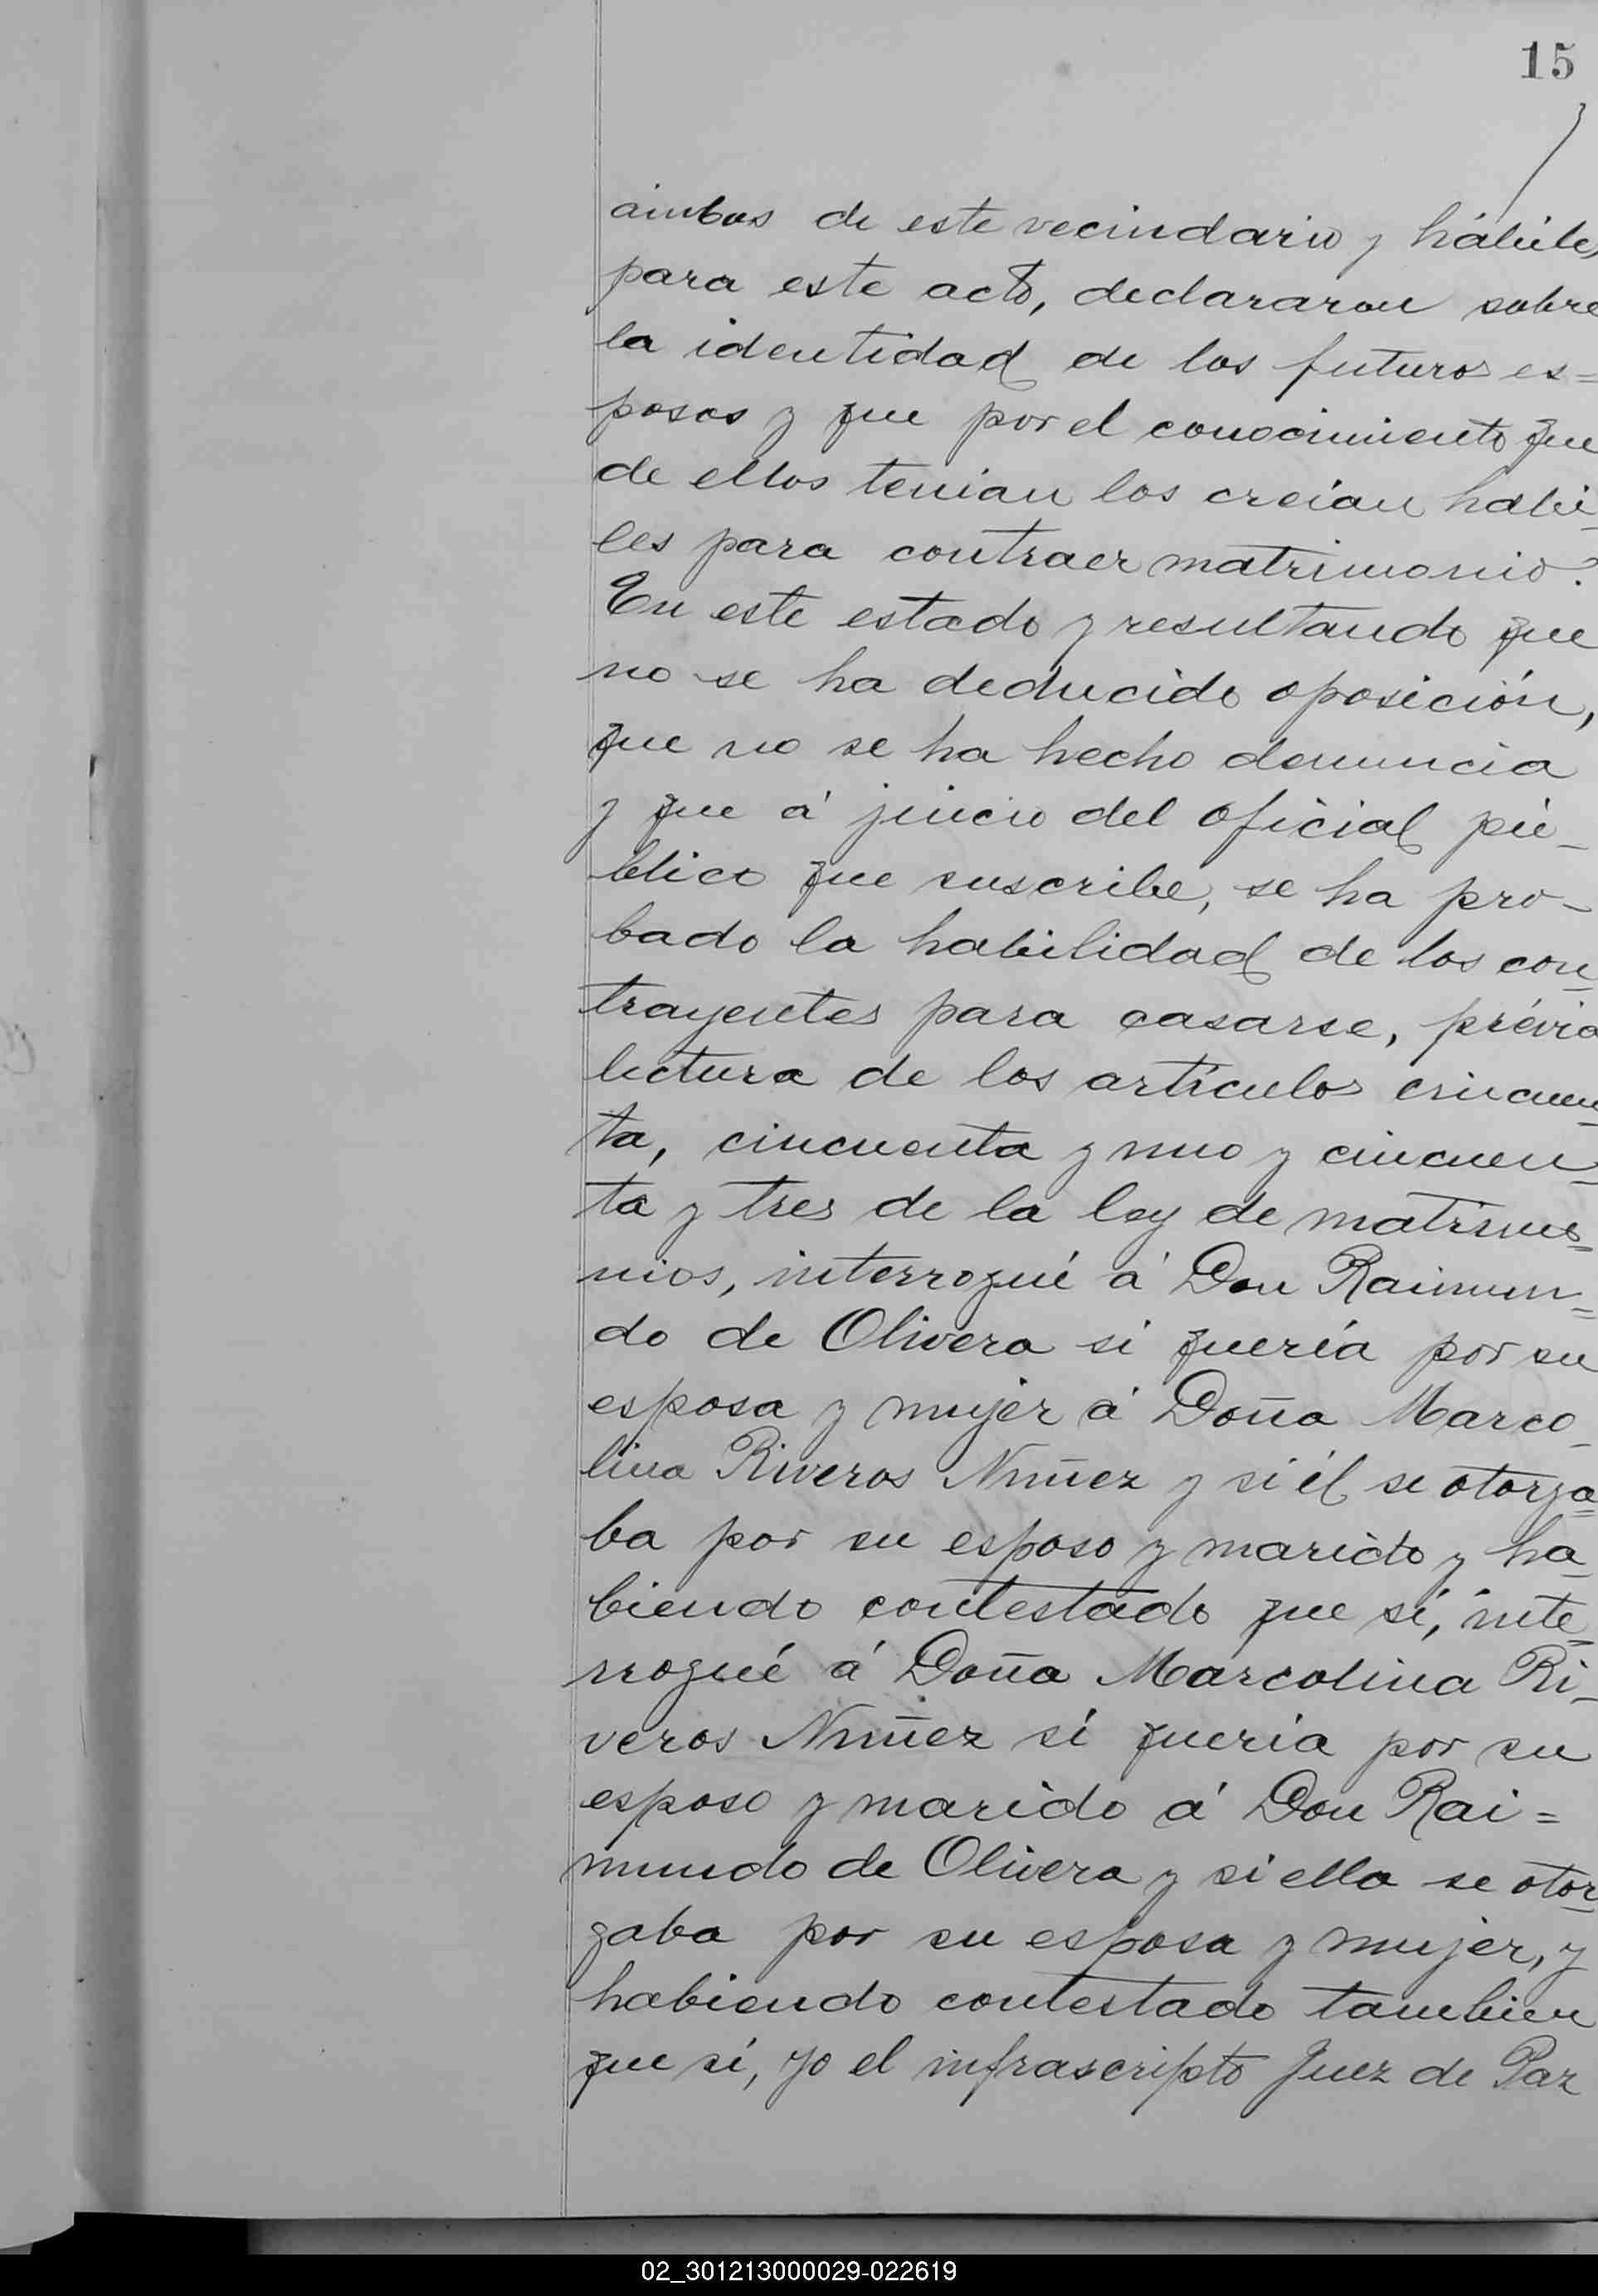 15
ambos de este vecindario y hábiles
para este acto, declararon sobre
la identidad de los futuros es=
posos y que por el conocimiento que
de ellos tenian los creían habi-
les para contraer matrimonio.
En este estado y resultando que
no se ha deducido oposición,
que no se ha hecho denuncia
y que á juicio del oficial pú-
blico que suscribe, se ha pro-
bado la habilidad de los con-
trayentes para casarse, prévia
lectura de los artículos cincuen-
ta, cincuenta y uno y cincuen-
ta y tres de la ley de matrimo=
nios, interrogué á Don Raimun=
do de Olivera si quería por su
esposa y mujer á Doña Marco-
lina Riveros Nuñez y si él se otorga=
ba por su esposo y marido y ha-
biendo contestado que sí, inte-
rrogué á Doña Marcolina Ri-
veros Nuñez si quería por su
esposo y marido á Don Rai=
mundo de Olivera y si ella se otor-
gaba por su esposa y mujer, y
habiendo contestado tambien
que sí, yo el infrascripto Juez de Paz
02_301213000029-022619